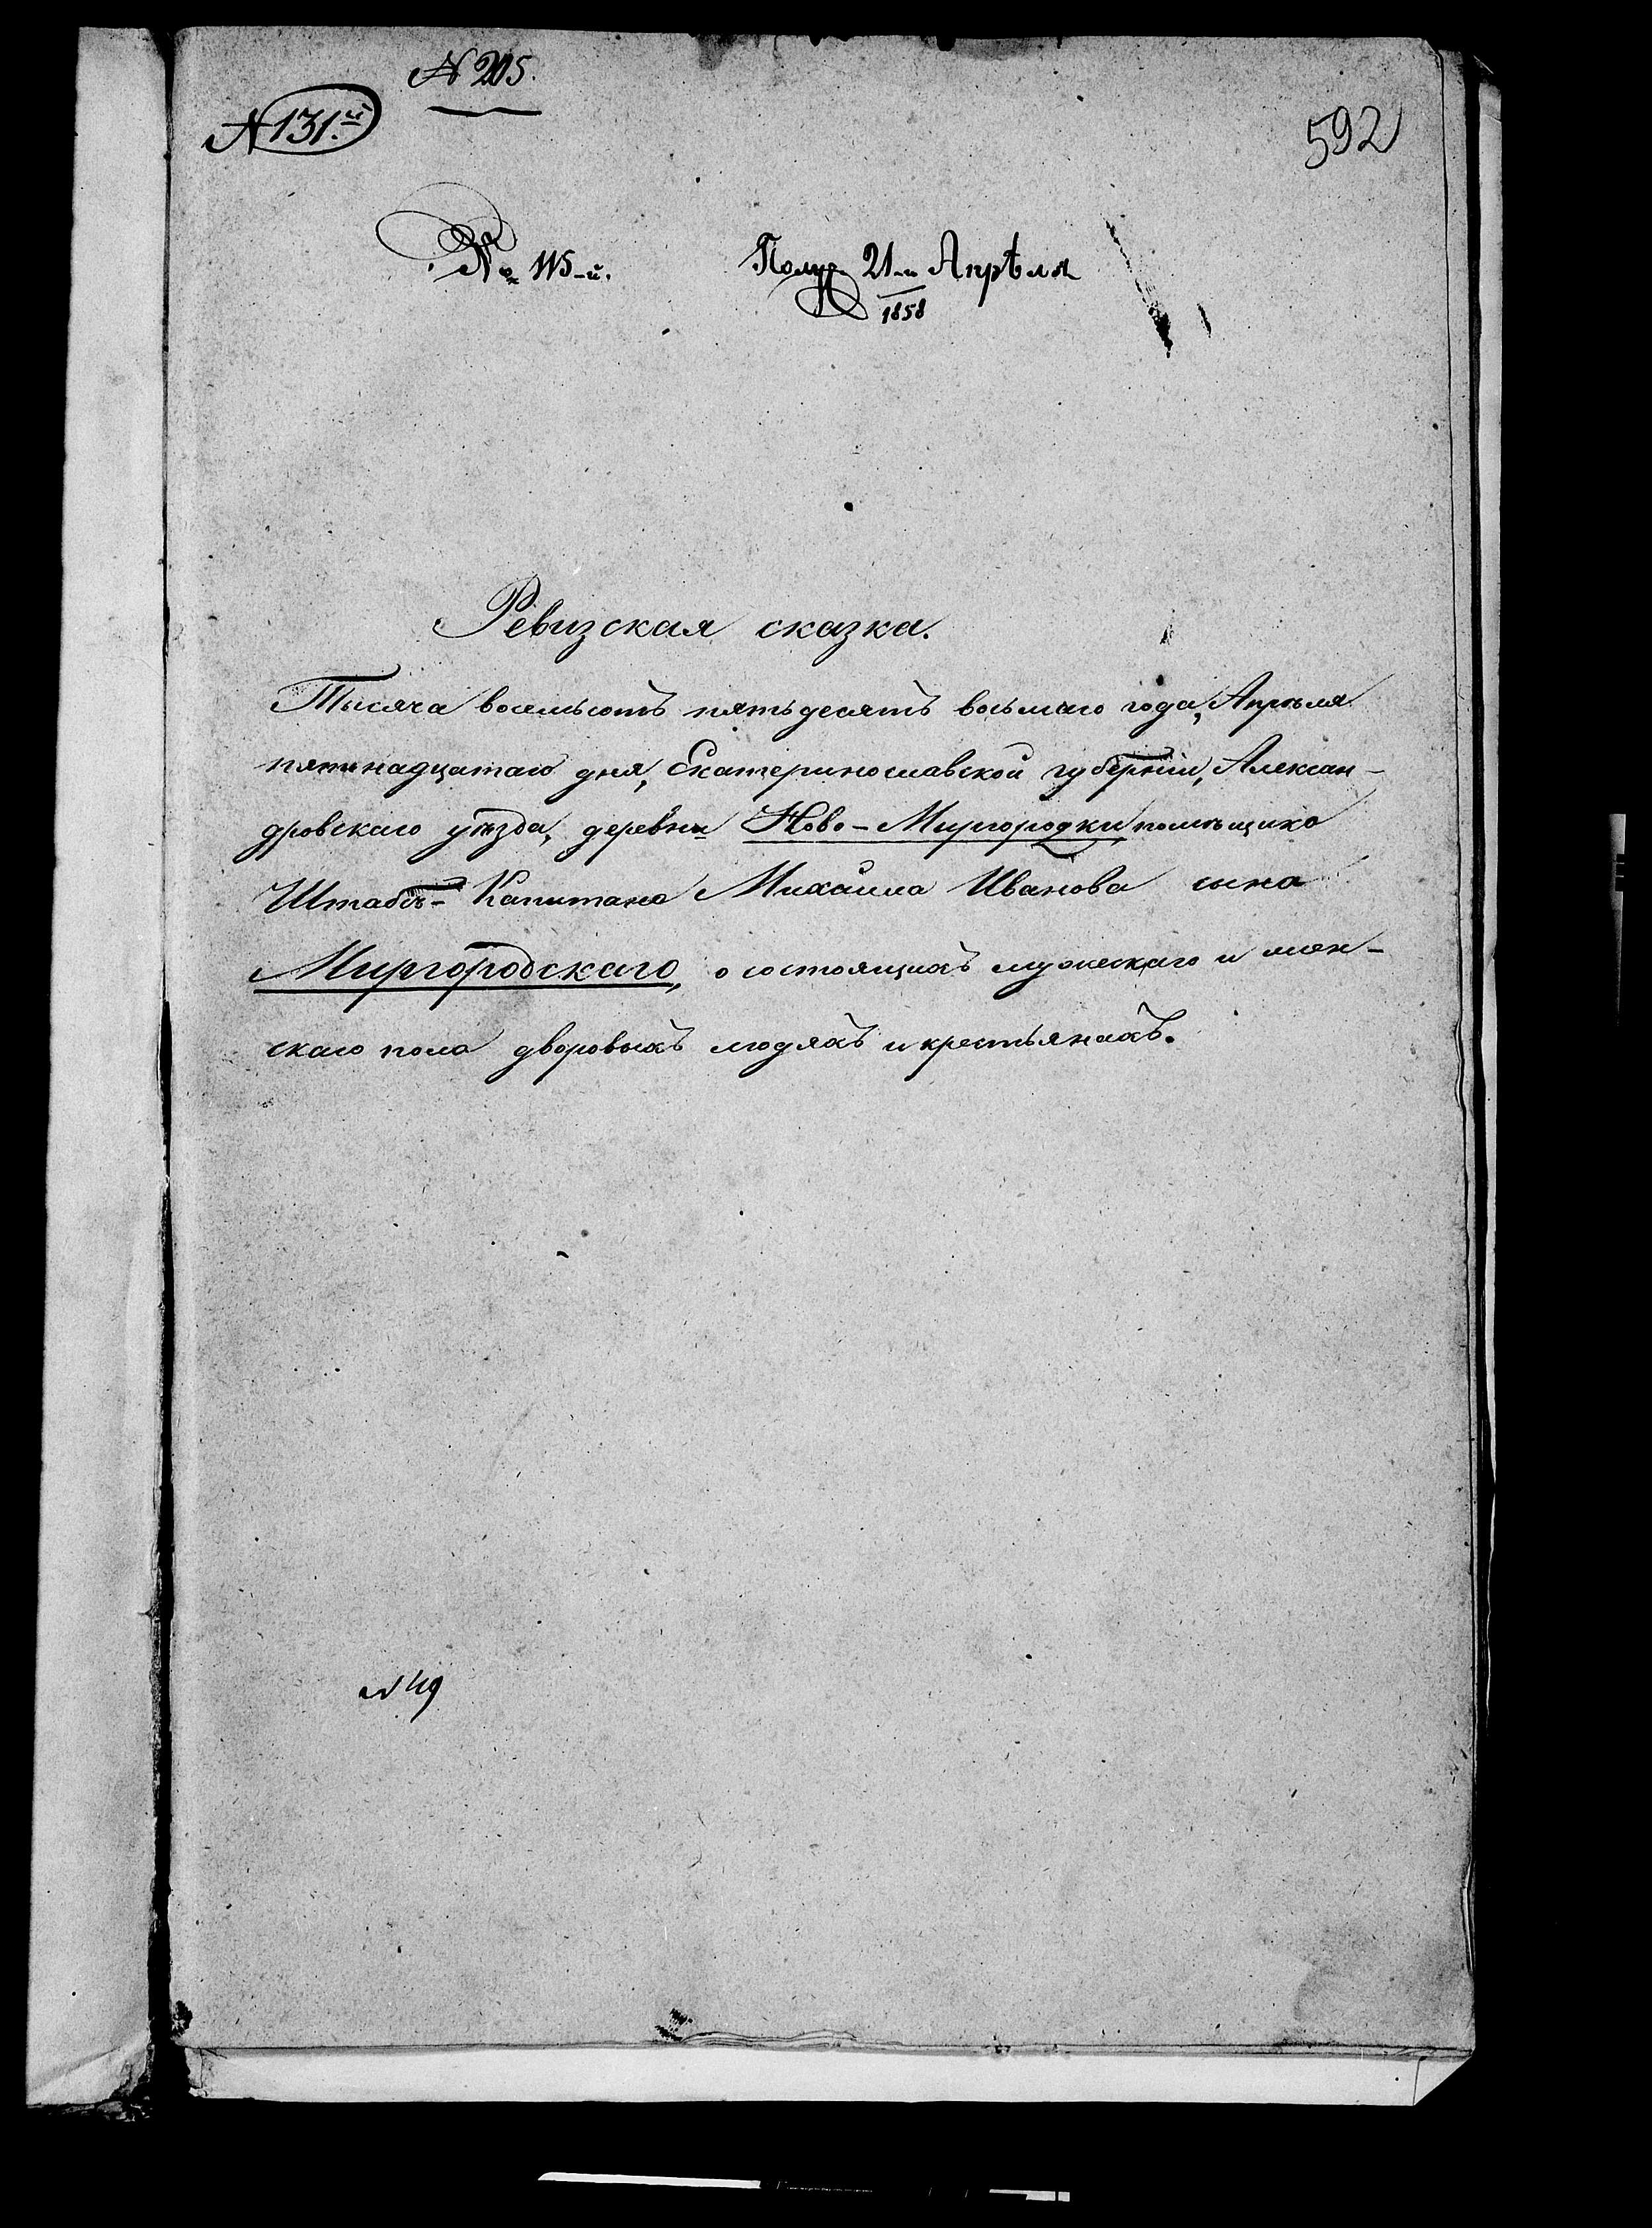 N 205.
N 131.й
592
№ 115-й.
Получ 21-го Апрѣля
1858
Ревизская сказка.
Тысяча восемьсотъ пятьдесятъ восьмаго года, Апрѣля
пятнадцатаго дня, Екатеринославской губерніи, Алексан-
дровскаго уѣзда, деревни Ново-Миргородки, помѣщика
Штабсъ-Капитана Михаила Иванова сына
Миргородскаго, о состоящихъ мужескаго и жен-
скаго пола дворовыхъ людяхъ и крестьянахъ.
N 49